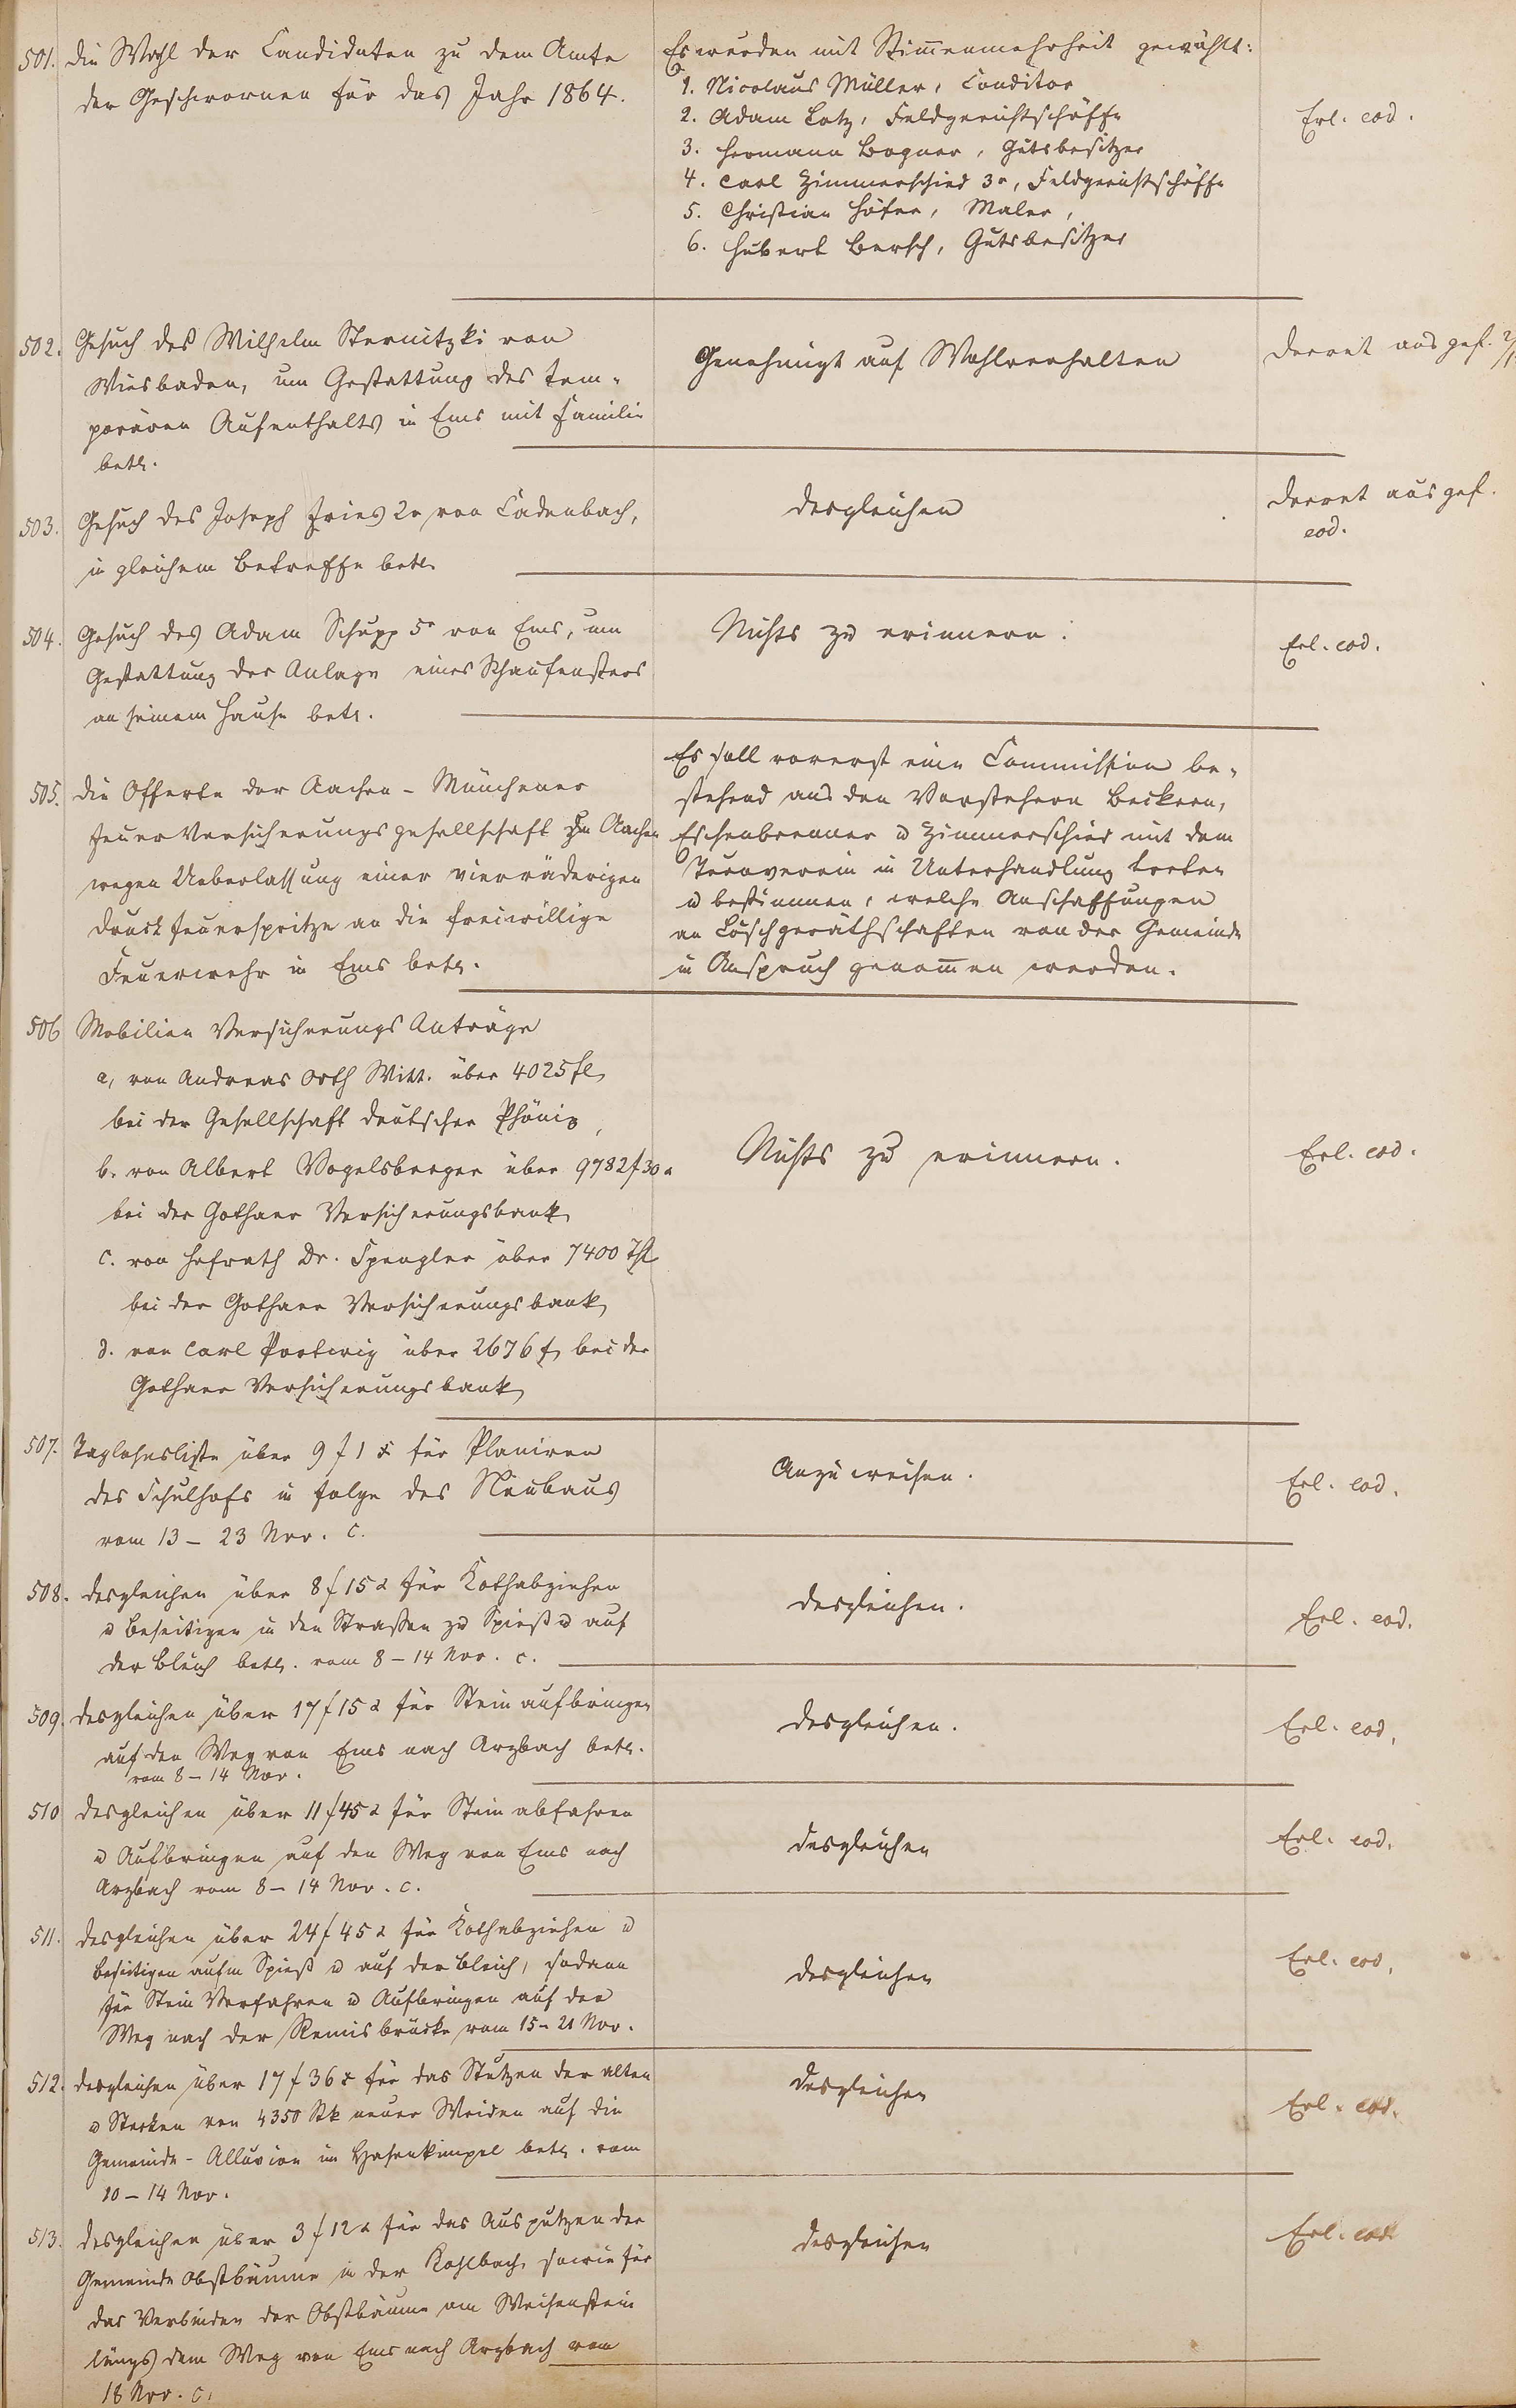 501. Die Wahl der Candidaten zu dem Amte
der Geschwornen für das Jahr 1864.
Es wurden mit Stimmenmehrheit gewählt:
1. Nicolaus Müller, Conditor
2. Adam Lotz, Feldgerichtschöffe
3. Hermann Bogner, Gutsbesitzer
4. Carl Zimmerschied 3r, Feldgerichtschöffe
5. Christian Höfer, Maler,
6. Hubert Bersch, Gutsbesitzer
Erl. eod.
502. Gesuch des Wilhelm Sternitzki von
Wiesbaden, um Gestattung des tem-
porären Aufenthalts in Ems mit Familie
betr.
Genehmigt auf Wohlverhalten
Decret ausgef.
503. Gesuch des Joseph Fries 2r von Cadenbach,
in gleichem Betreffe betr.
desgleichen
Decret ausgef.
eod.
504. Gesuch des Adam Schupp 5r von Ems, um
Gestattung der Anlage eines Schaufensters
an seinem Hause betr.
Nichts zu erinnern.
Erl. eod.
505. Die Offerte der Aachen-Münchener
Feuer Versicherungsgesellschaft zu Aachen
wegen Ueberlassung einer vierräderigen
Druckfeuerspritze an die freiwillige
Feuerwehr in Ems betr.
Es soll vorerst eine Commission be-
stehend aus den Vorstehern Beckern,
Eschenbrenner u Zimmerschied mit dem
Turnverein in Unterhandlung treten
u bestimmen, welche Anschaffungen
an Löschgeräthschaften von der Gemeinde
in Anspruch genommen werden.
506 Mobilien Versicherungs Anträge
a, von Andreas Orth Witt. über 4025 fl
bei der Gesellschaft deutscher Phönix,
b. von Albert Vogelsberger über 9782 f 30 x
bei der Gothaer Versicherungsbank
c. von Hofrath Dr. Spengler über 7400 Thl
bei der Gothaer Versicherungsbank
d. von Carl Portwig über 2676 f, bei der
Gothaer Versicherungsbank
Nichts zu erinnern.
Erl. eod.
507. Taglohnsliste über 9 f 1 x für Planiren
des Schulhofs in Folge des Neubaus
vom 13 - 23 Nov. c.
Anzuweisen.
Erl. eod.
508. desgleichen über 8 f 15 x für Kothabziehen
u Beseitigen in den Straßen zu Spieß u auf
der Bleich betr. vom 8 - 14 Nov. c.
desgleichen.
Erl. eod.
509. desgleichen über 17 f 15 x für Stein aufbringen
auf den Weg von Ems nach Arzbach betr.
vom 8 - 14 Nov.
desgleichen.
Erl. eod.
510 desgleichen über 11 f 45 x für Stein abfahren
u Aufbringen auf den Weg von Ems nach
Arzbach vom 8 - 14 Nov. c.
desgleichen
Erl. eod.
511. desgleichen über 24 f 45 x für Kothabziehen u
Beseitigen aufm Spieß u auf der Bleich, sodann
für Stein Verfahren u Aufbringen auf den
Weg nach der Remisbrücke vom 15 - 21 Nov.
desgleichen
Erl. eod.
512. desgleichen über 17 f 36 x für das Stutzen der alten
u Stecken von 4350 Stk neuer Weiden auf die
Gemeinde-Alluvion im Hasenkümpel betr. vom
10 - 14 Nov.
desgleichen
Erl. eod.
513. desgleichen über 3 f 12 x für das Ausputzen der
Gemeinde Obstbäume in der Kohlbach, sowie für
das Verbinden der Obstbäume am Weisenstein
längs dem Weg von Ems nach Arzbach vom
18 Nov. c.
desgleichen
Erl. eod.